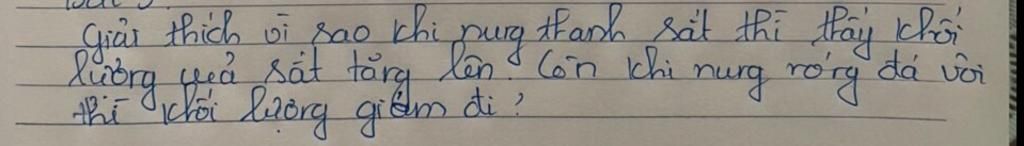 giải thích vì sao khi nung thanh sắt thì thấy khối
lượng của sắt tăng lên. Còn khi nung nóng đá vôi
thì khối lượng giảm đi?